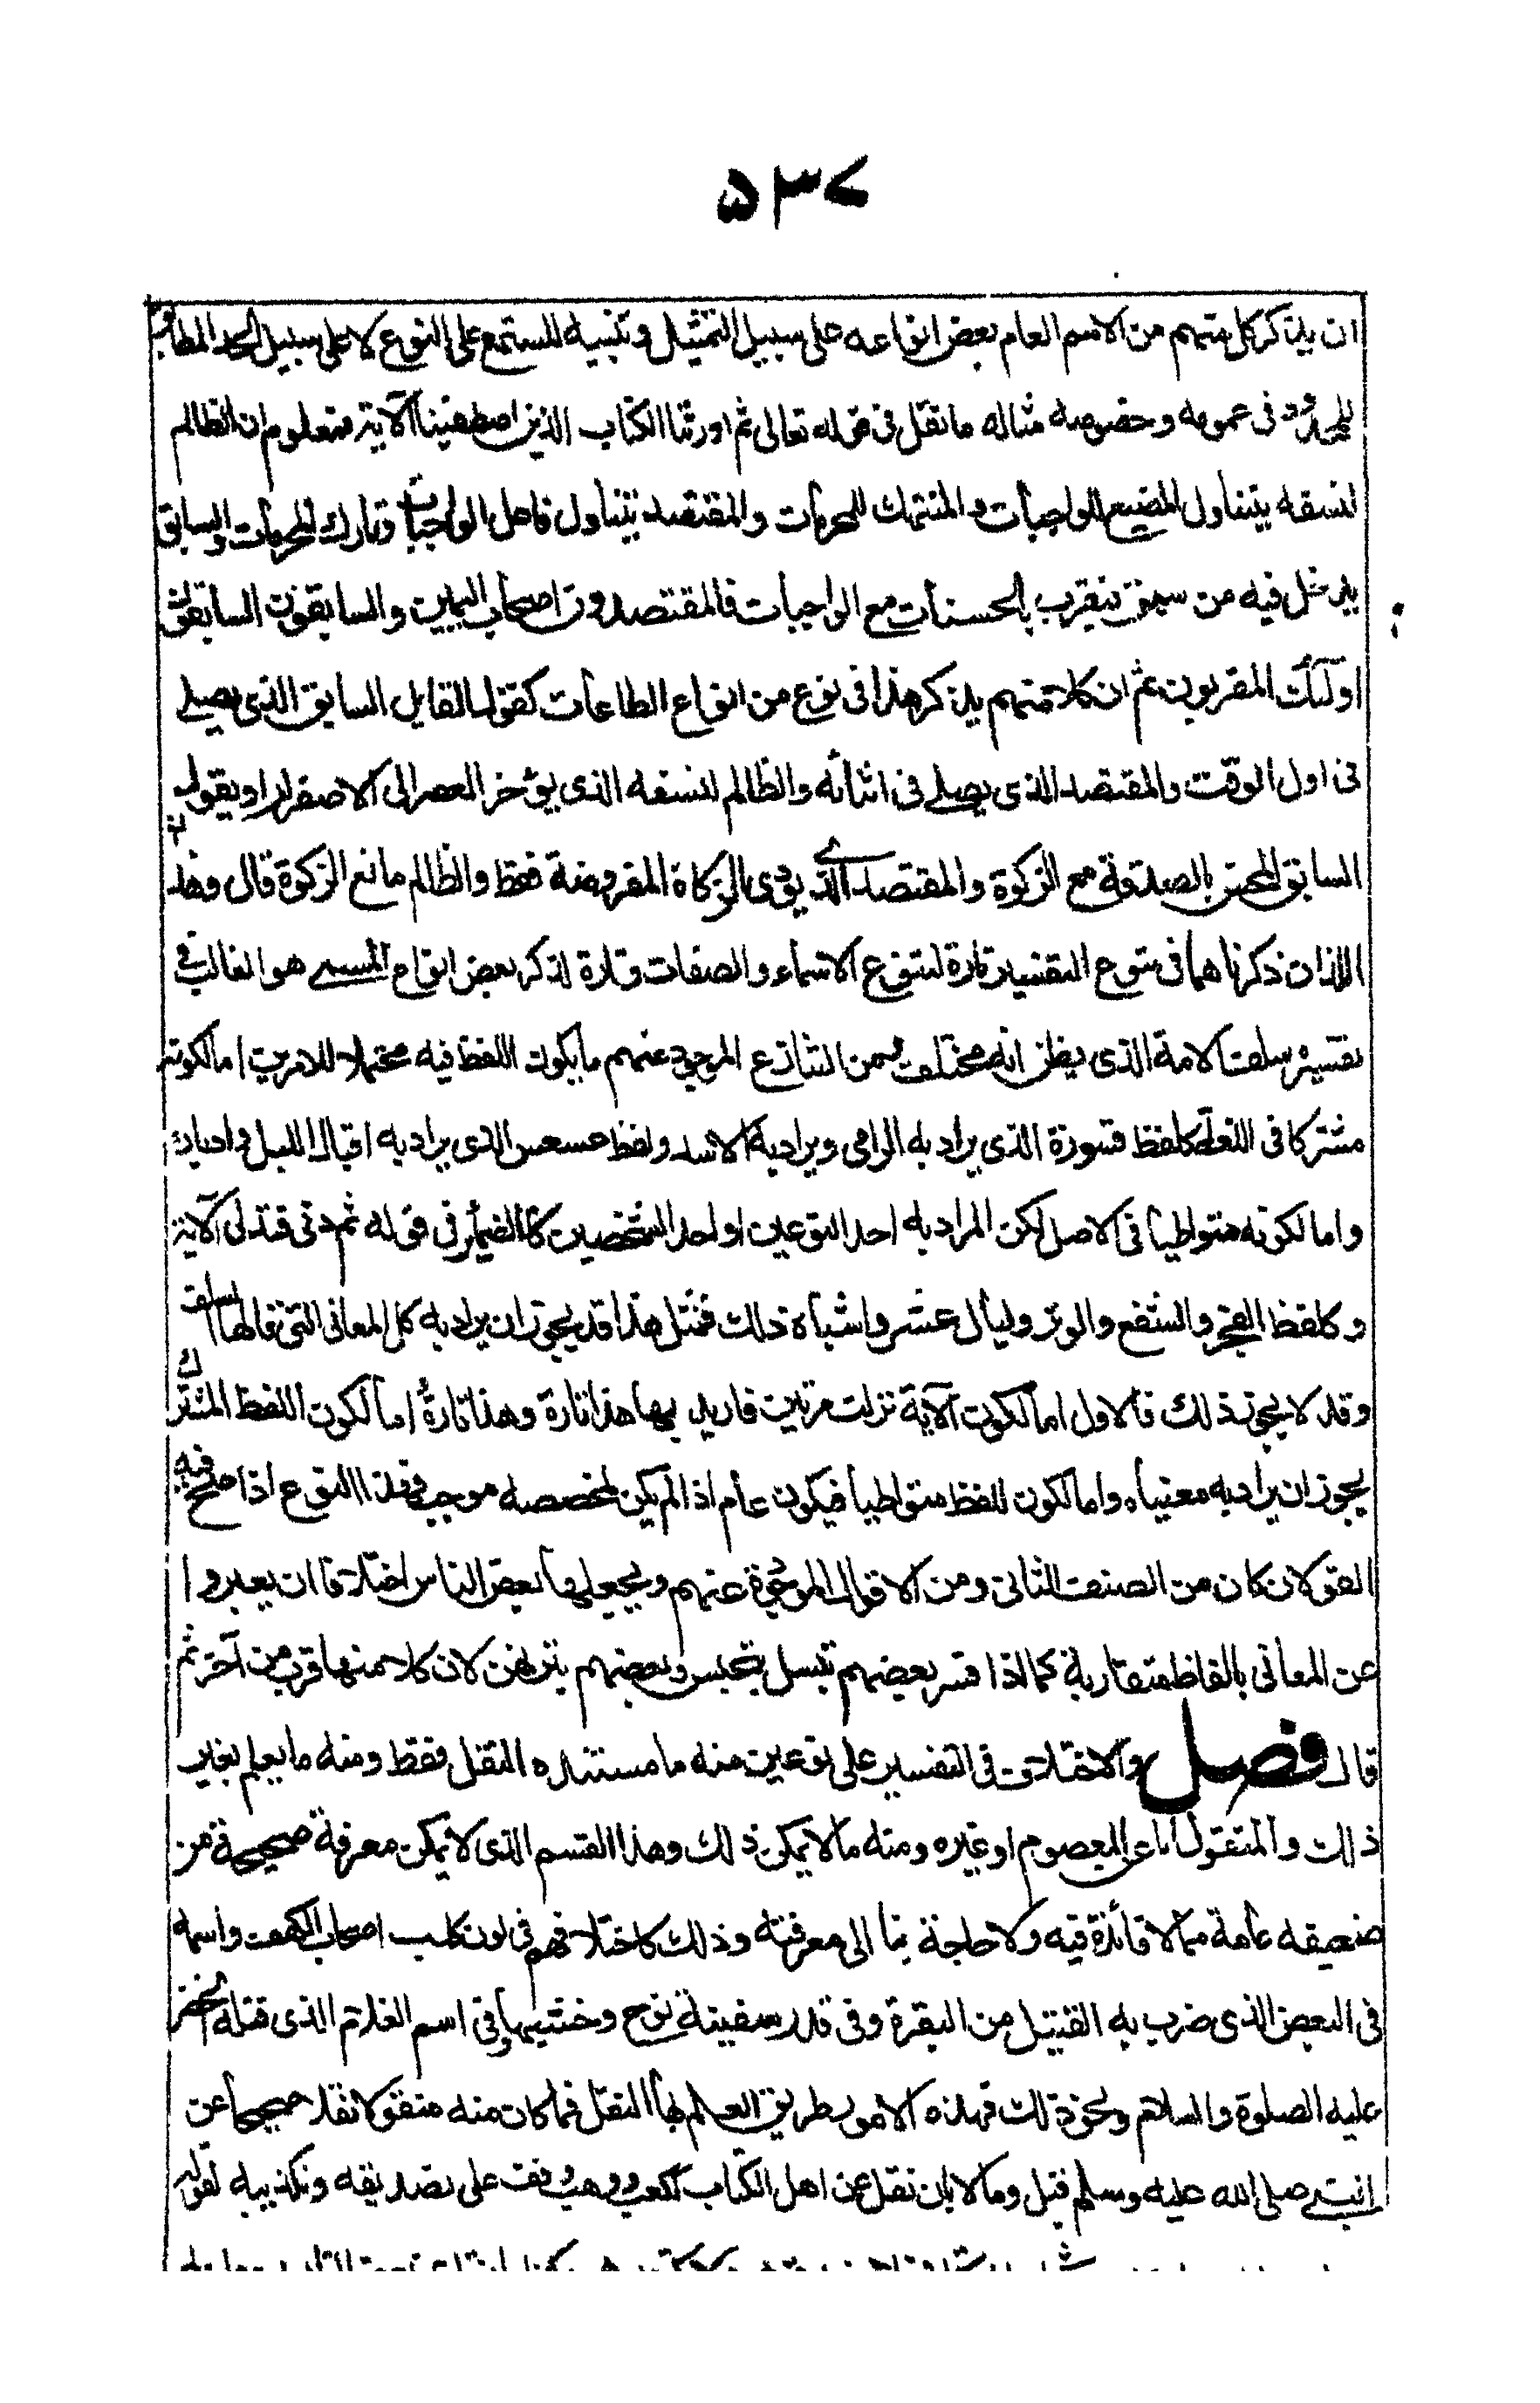 ٥٣٧
ان يذكر كل منهم من الاسم العام بعض انواعه على سبيل التمثيل وتنبيه المستمع على النوع لا على سبيل الحد المطابق
للمحدود فى عمومه وخصوصه مثاله ما نقل فى قوله تعالى ثم اورثنا الكتاب الذين اصطفينا الآية فمعلوم ان الظالم
لنفسه يتناول المضيع للواجبات والمنتهك للحرمات والمقتصد يتناول فاعل الواجبات وتارك المحرمات والسابق
يدخل فيه من سبق فتقرب بالحسنات مع الواجبات فالمقتصدون اصحاب اليمين والسابقون السابقون
اولئك المقربون ثم ان كلا منهم يذكر هذا فى نوع من انواع الطاعات كقول القايل السابق الذى يصلى
فى اول الوقت والمقتصد الذى يصلى فى اثنائه والظالم لنفسه الذى يؤخر العصر الى الاصفرار او يقول
السابق المحسن بالصدقة مع الزكوة والمقتصد الذى يودى الزكاة المفروضة فقط والظالم مانع الزكوة قال وهذان
اللذان ذكرناهما فى تنوع التفسير تارة لتنوع الاسماء والصفات وتارة لذكر بعض انواع المسمى هو الغالب فى
تفسير سلف الامة الذى يظن انه مختلف ومن التنازع الموجود عنهم ما يكون اللفظ فيه محتملا للامرين اما لكونه
مشتركا فى اللغة كلفظ قسورة الذى يراد به الرامى ويراد به الاسد ولفظ عسعس الذى يراد به اقبال الليل وادباره
واما لكونه متواطيا فى الاصل لكن المراد به احد النوعين او احد الشخصين كالضمائر فى قوله ثم دنى فتدلى الآية
وكلفظ الفجر والشفع والوتر وليال عشر واشباه ذلك فمثل هذا قد يجوز ان يراد به كل المعانى التى قالها السلف
وقد لا يجوز ذلك فالاول اما لكون الآية نزلت مرتين فاريد بها هذا تارة وهذا تارة اما لكون اللفظ المشترك
يجوز ان يراد به معنياه واما لكون اللفظ متواطيا فيكون عام اذا لم يكن لمخصصه موجب فهذا النوع اذا صح فيه
القولان كان من الصنف الثانى ومن الاقوال الموجودة عنهم ويجعلها بعض الناس اختلافا ان يعبروا
عن المعانى بالفاظ متقاربة كما اذا فسر بعضهم تبسل بتحبس وبعضهم بترتهن لان كلا منها قريب من آخر ثم
قال فصل والاختلاف فى التفسير على نوعين منه ما مستنده النقل فقط ومنه ما يعلم بغير
ذلك والمنقول اما عن المعصوم او غيره ومنه ما لا يمكن ذلك وهذا القسم الذى لا يمكن معرفة صحيحة من
ضعيفه عامة مما لا فائدة فيه ولا حاجة بنا الى معرفته وذلك كاختلافهم فى لون كلب اصحاب الكهف واسمه
فى البعض الذى ضرب به القتيل من البقرة وفى قدر سفينة نوح وخشبها وفى اسم الغلام الذى قتله الخضر
عليه الصلوة والسلام ونحو ذلك فهذه الامور طريق العلم بها النقل فما كان منه منقولا نقلا صحيحا عن
النبى صلى الله عليه وسلم قبل وما لا بان نقل عن اهل الكتاب ككعب ووهب وقف على تصديقه وتكذيبه لقوله